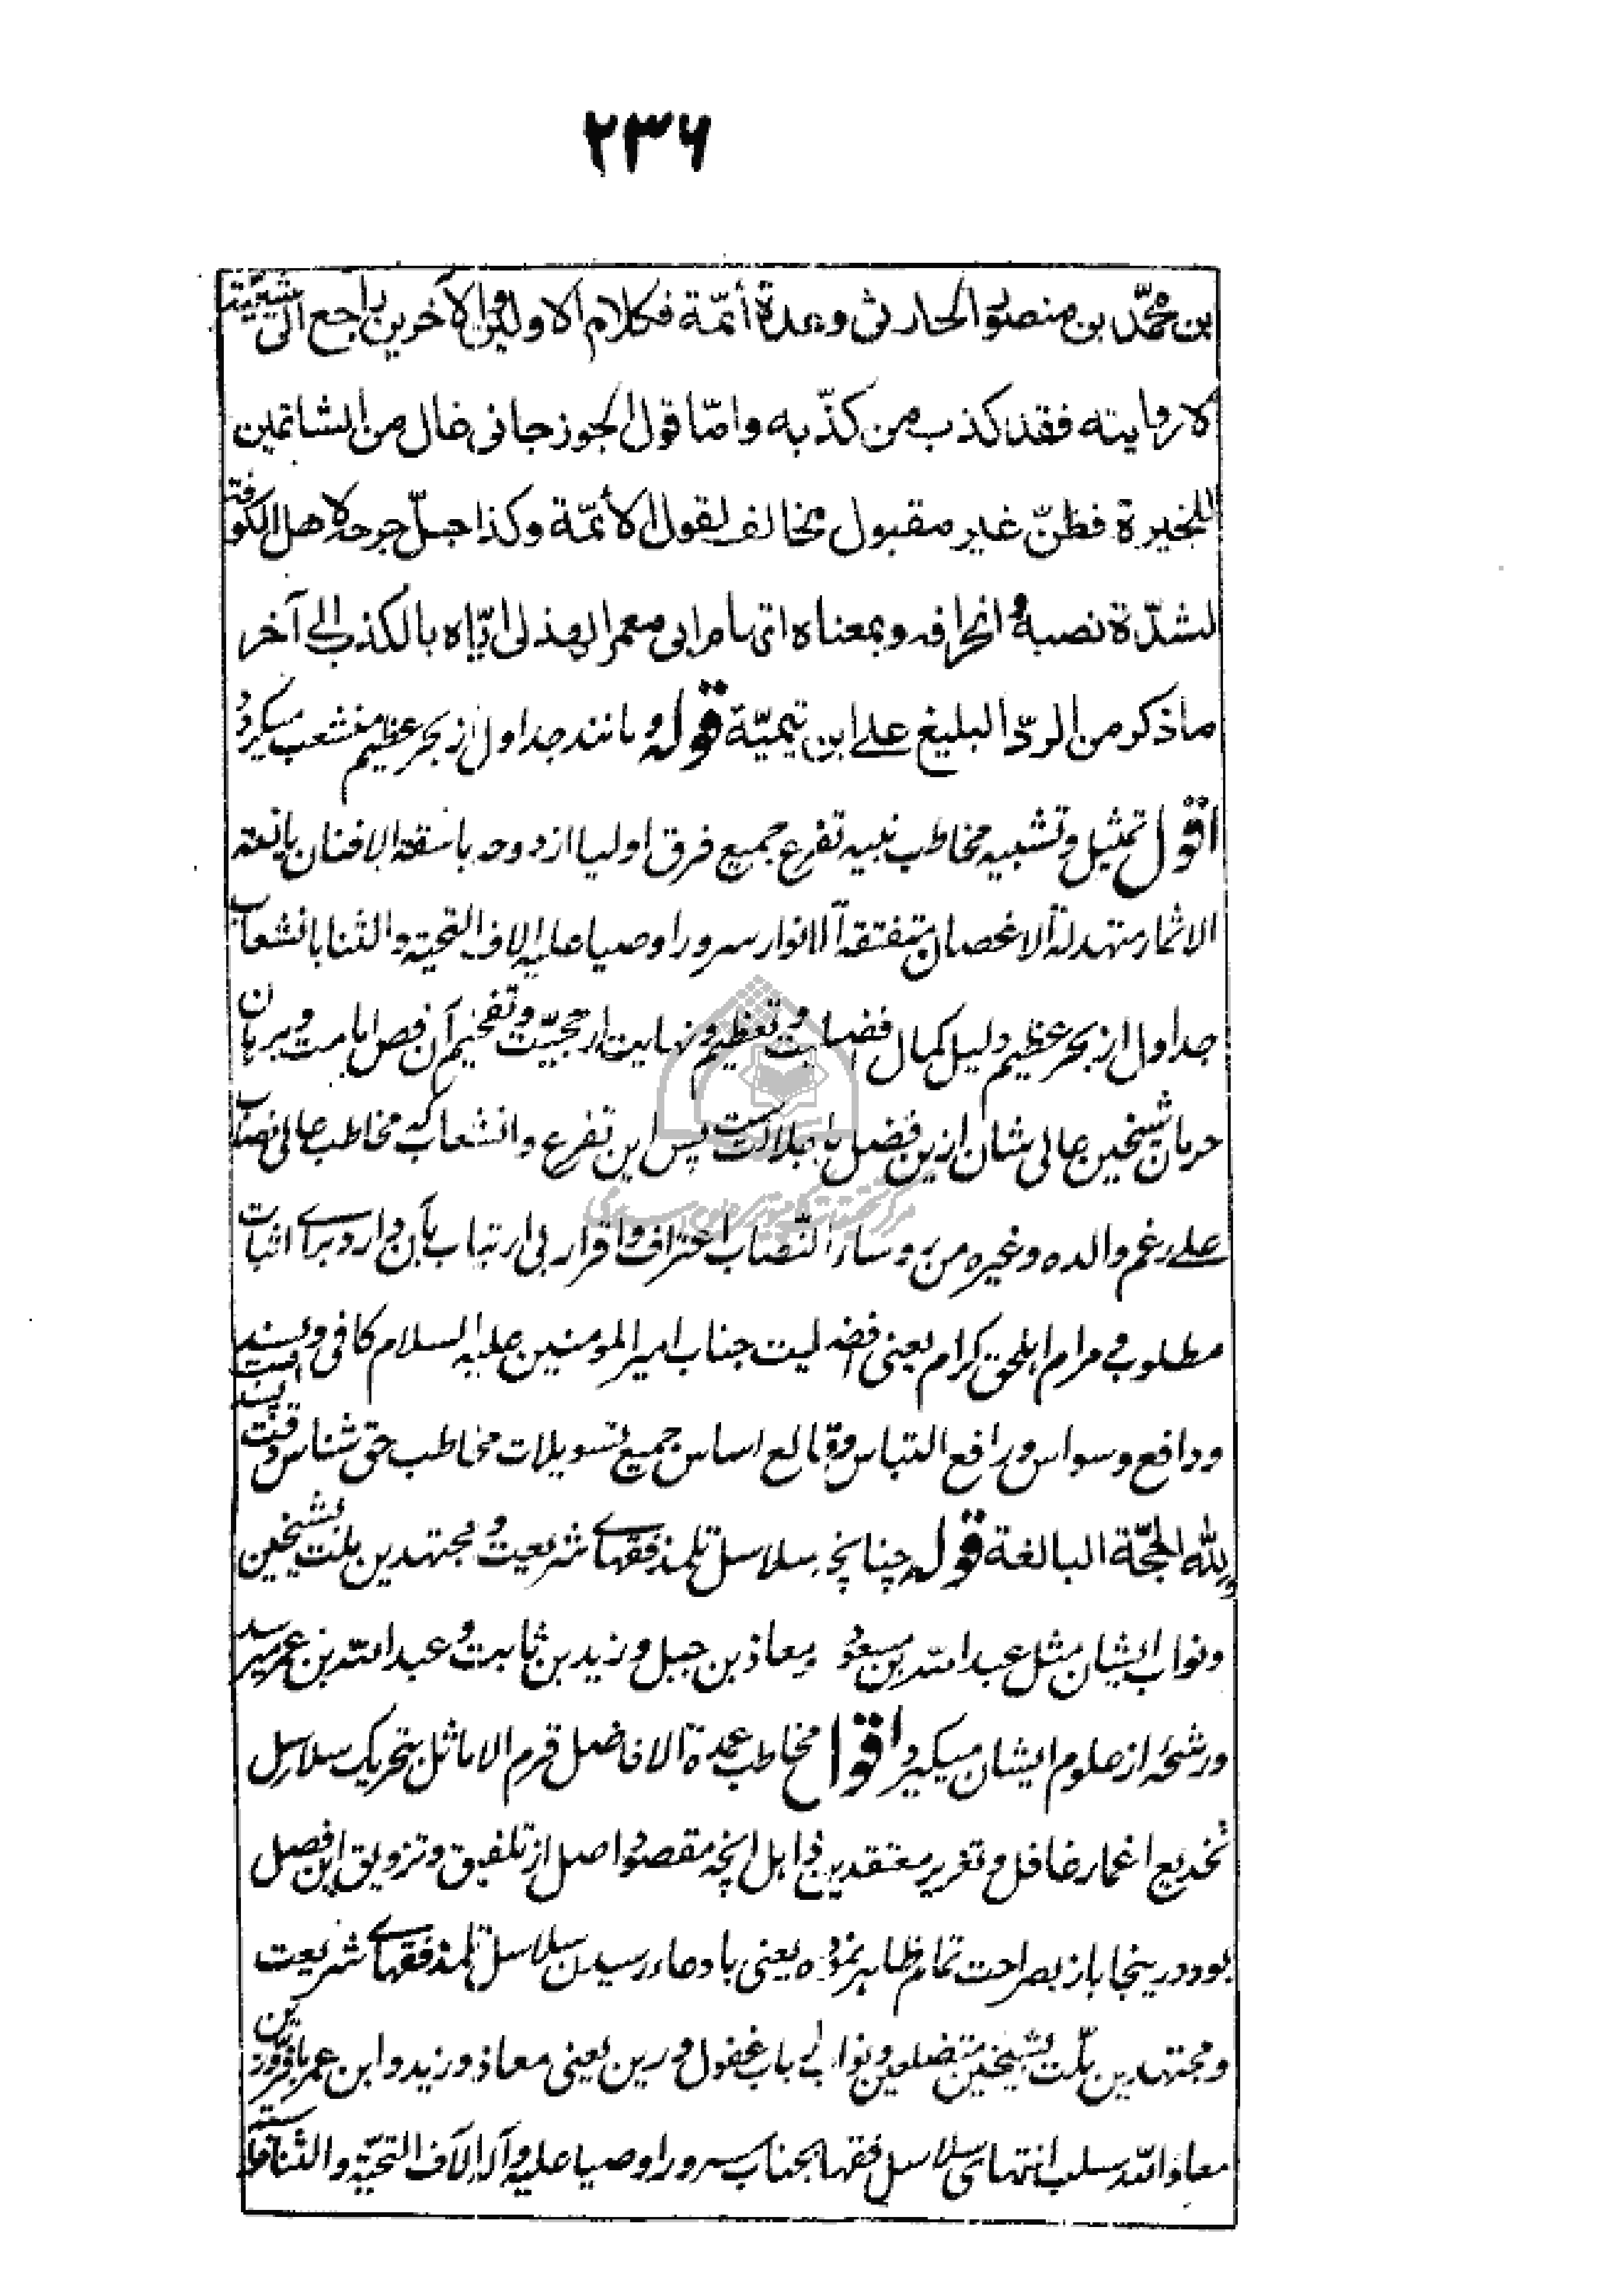 ۲۳۶
بن محمّد بن منصور الحارثی وعدة أئمّة فكلام الاولین والآخرین راجع الی تشیعیته
لا روایته فقد كذب من كذّب به وامّا قول الجوزجانی غال من الشاتمین
للخیرة فظنّ غیر مقبول مخالف لقول الأئمّة وكذا جلّ جرحه لاهل الكوفة
لشدّة نصبه وانحرافه وبمعناه اتهام ابی معمر الهذلی ایّاه بالكذب الی آخر
ما ذكر من الردّ البلیغ علی ابن تیمیّة قوله ومانند جداول از بحر عظیم منشعب میكردد
اقول تمثیل وتشبیه مخاطب نبیه تفرع جمیع فرق اولیا از دوحه باسقة الافنان یانعة
الاثمار متهدلة الاغصان متفتقة الانوار سرور اوصیا علیه الاف التحیة والثنا بانشعاب
جداول از بحر عظیم دلیل كمال فضیلت وتعظیم ونهایت ارجحیّت وتفخیم آن فص امامت وبرهان
حرمان شیخین عالی شان ازین فضل باجلالت ست پس این تفرع وانشعاب كه مخاطب عالی نصاب
علی رغم والده وغیره من روساء النّصاب اعتراف واقرار بی ارتیاب بآن دارد برای اثبات
مطلوب ومرام اهل حق كرام یعنی افضلیت جناب امیر المومنین علیه السلام كافی وبسند است
ودافع وسواس ورافع التباس وقالع اساس جمیع تسویلات مخاطب حق شناس دقت پسند
ولله الحجّة البالغة قوله چنانچه سلاسل تلمذ فقهای شریعت ومجتهدین ملت بشیخین
ونواب ایشان مثل عبد الله بن مسعود ومعاذ بن جبل وزید بن ثابت وعبد الله بن عمر میرسد
ورشحهٔ از علوم ایشان میكیرد اقول مخاطب عمدة الافاضل قرم الاماثل بتحریك سلاسل
تخدیع اغمار غافل وتغریر معتقدین ذاهل آنچه مقصود اصل از تلفیق وتزویق این فصل
بود درینجا باز بصراحت تمام ظاهر نموده یعنی بادعاء رسیدن سلاسل تلمذ فقهای شریعت
ومجتهدین ملّت بشیخین متضلعین ونواب باب غفول ورین یعنی معاذ وزید وابن عمر
معاذ الله سلب انتهای سلاسل فقها بجناب سرور اوصیا علیه وآله الآف التحیّة والثنا